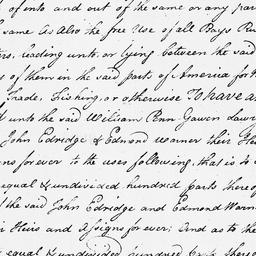 of into and out of the same or any par
same As Also the free Use of all Bays Ri
ters, leading unto, or lying between the said
s of them in the said parts of America, for t
Trade, Fishing, or otherwise To have a
d unto the said William Penn Gawen Lawr
John Edridge & Edmond Warner their Hei
ns forever to the uses following, that is to s
equal & undivided hundred parts there of
the said John Edridge and Edmond Warn
ir Heirs and Assigns for ever. And as to the
equal & undivided hundred